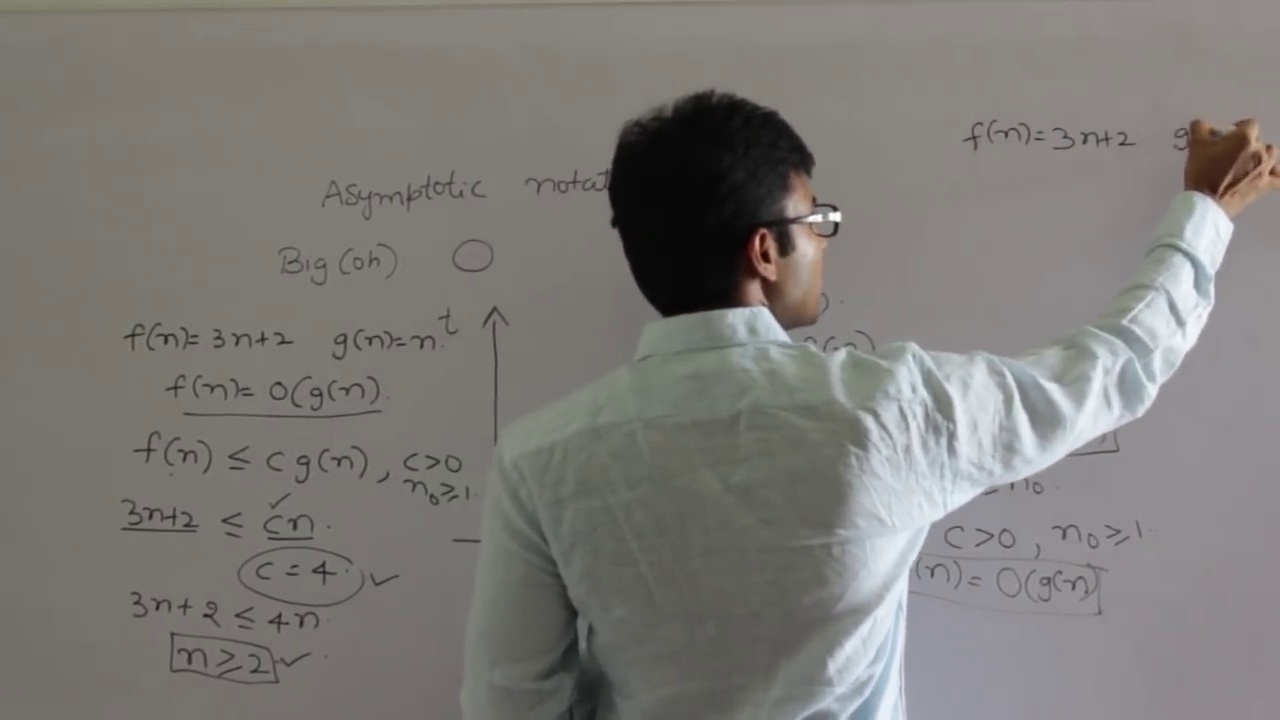 f(n)=3n+2 g
Asymptotic notat
Big(oh) O
f(n)=3n+2 g(n)=n. t
f(n)= O(g(n).
f(n) ≤ c g(n), c>0
n₀≥1.
3n+2 ≤ cn. ✓
c=4. ✓
3n+2 ≤ 4n.
n≥2 ✓
n₀.
c>0, n₀≥1.
(n)= O(g(n)